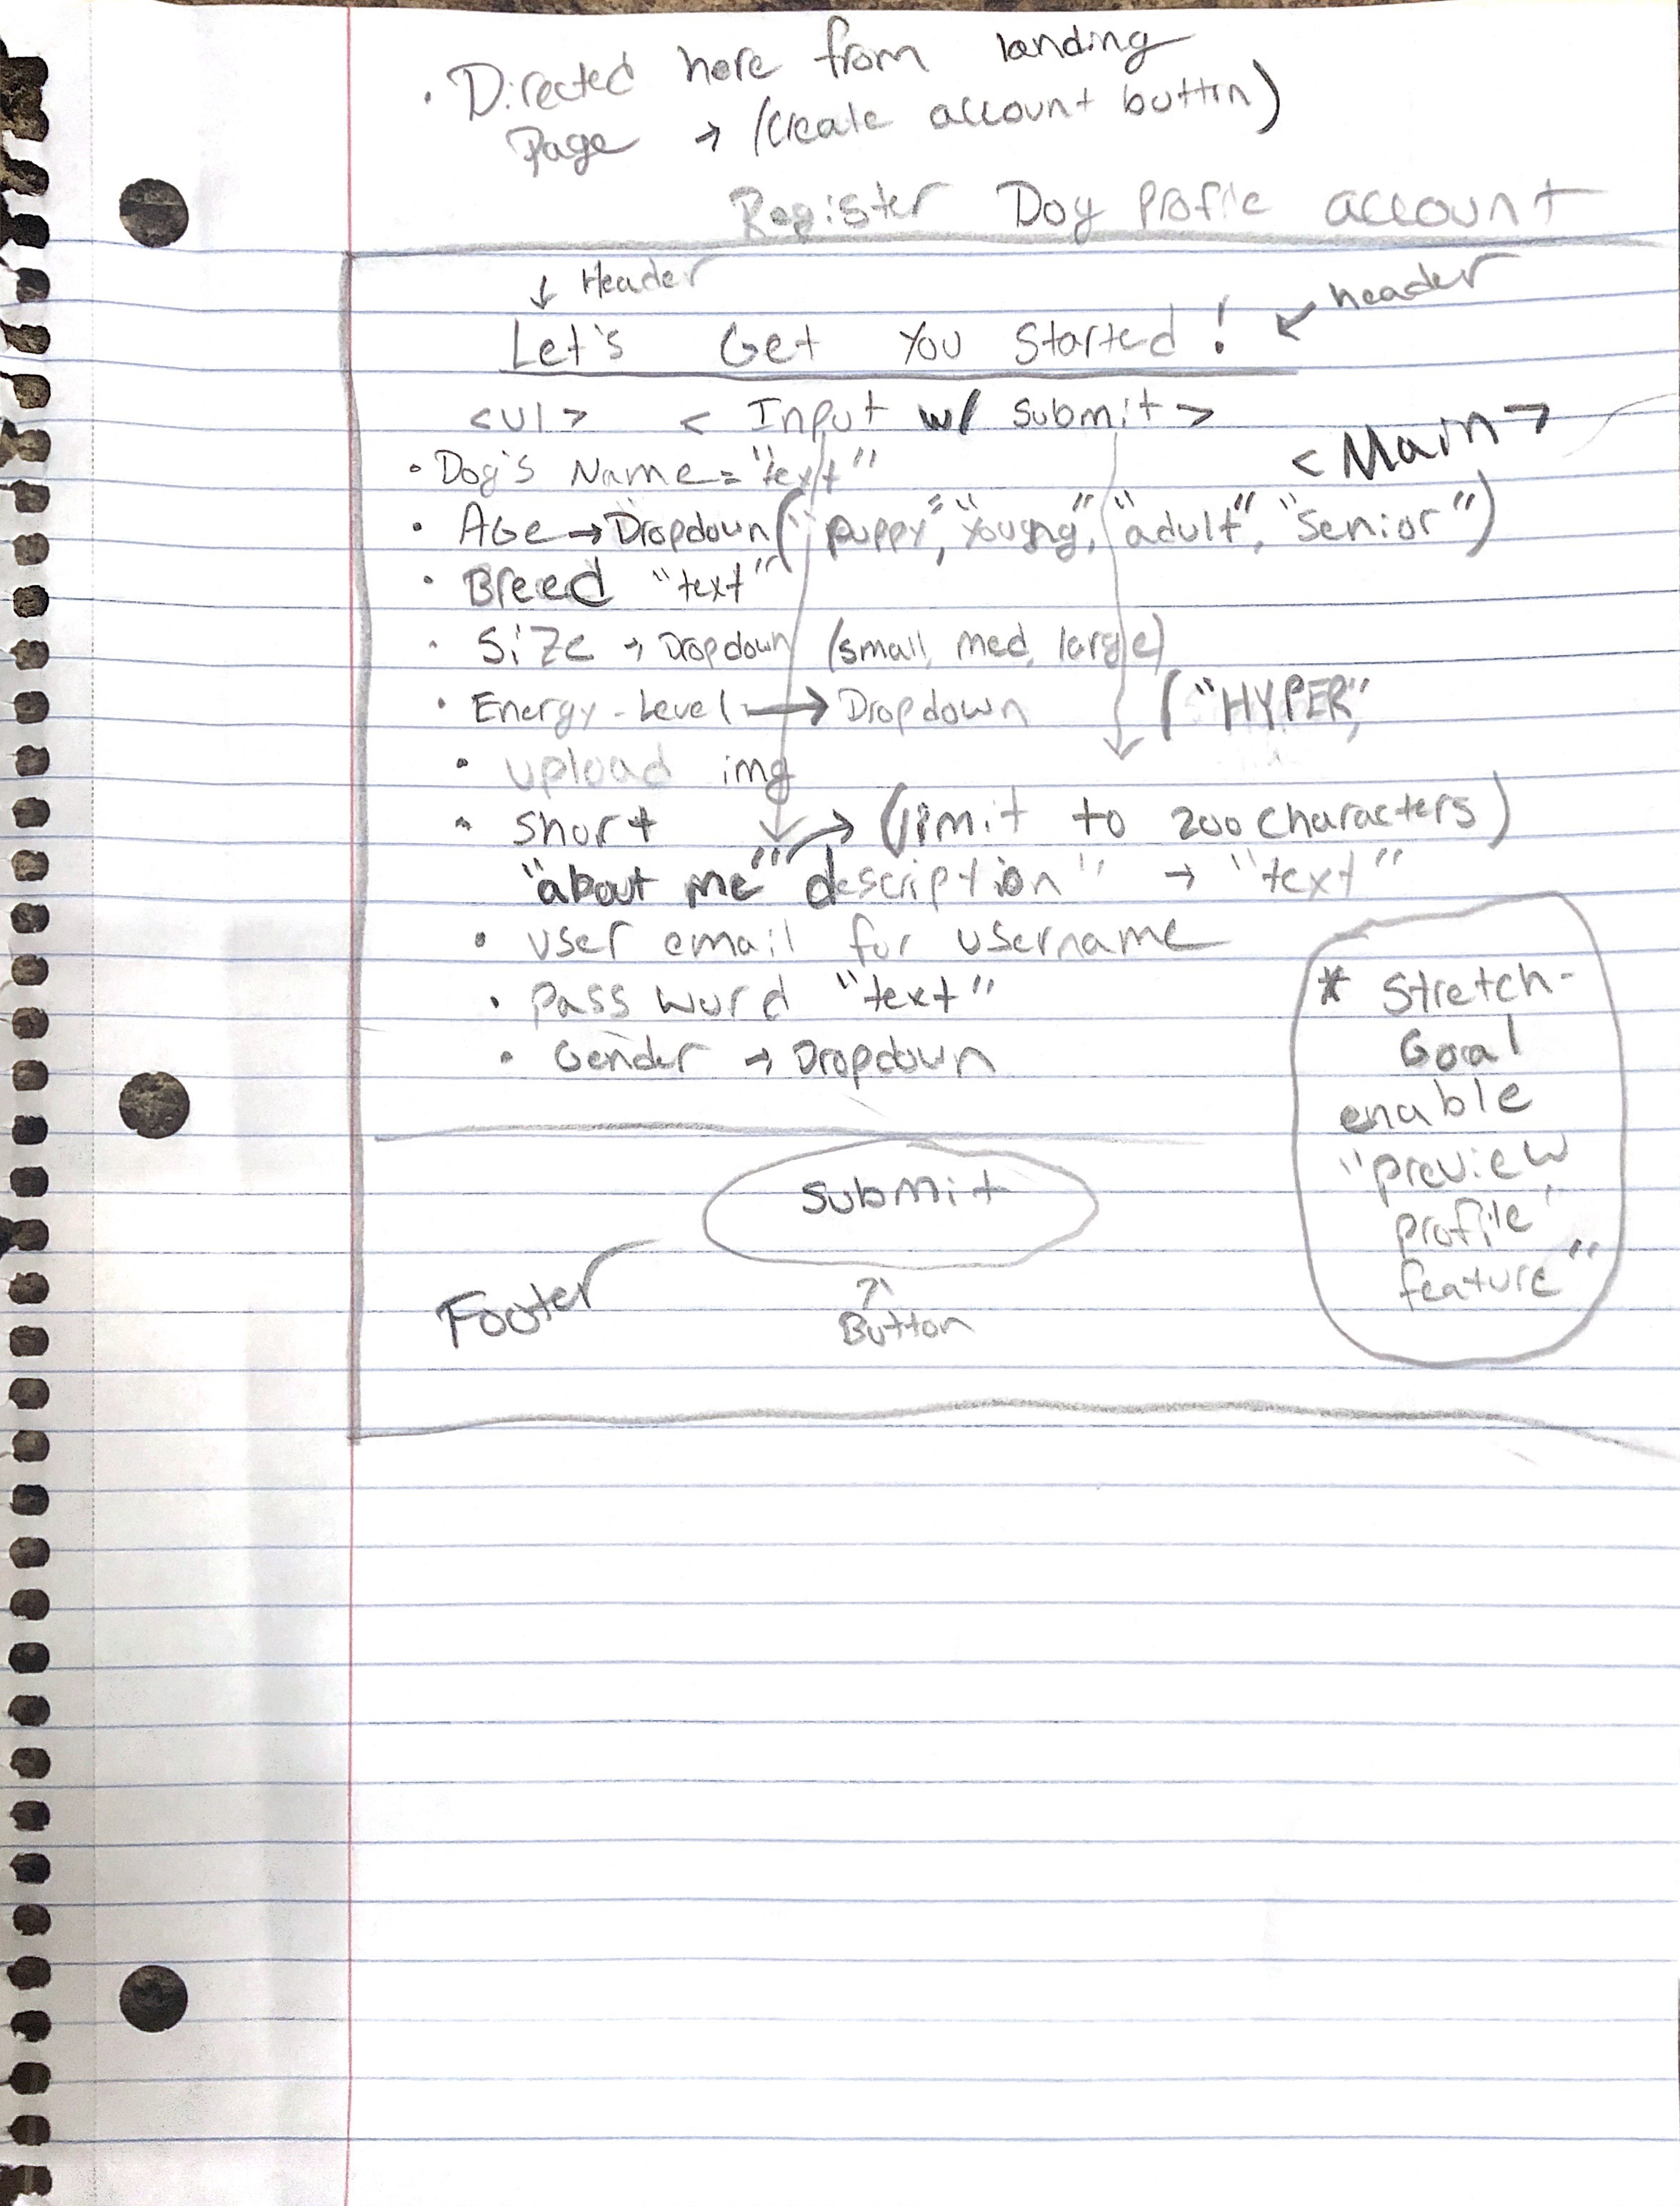 · Directed here from landing
Page → (Create account button)
Register Dog Profile account
↓ Header
header
Let's Get You Started!
<ul> < Input w/ submit >
<Main>
· Dog's Name = "text"
· Age → Dropdown ("puppy", "young", "adult", "Senior")
· Breed "text"
· Size → Dropdown (small, med, large)
· Energy-Level → Dropdown ("HYPER",
· upload img
· short → (limit to 200 characters)
"about me" description" → "text"
· user email for username
· Password "text"
· Gender → Dropdown
* Stretch-
Goal
enable
"preview
profile
feature"
Submit
Footer
Button